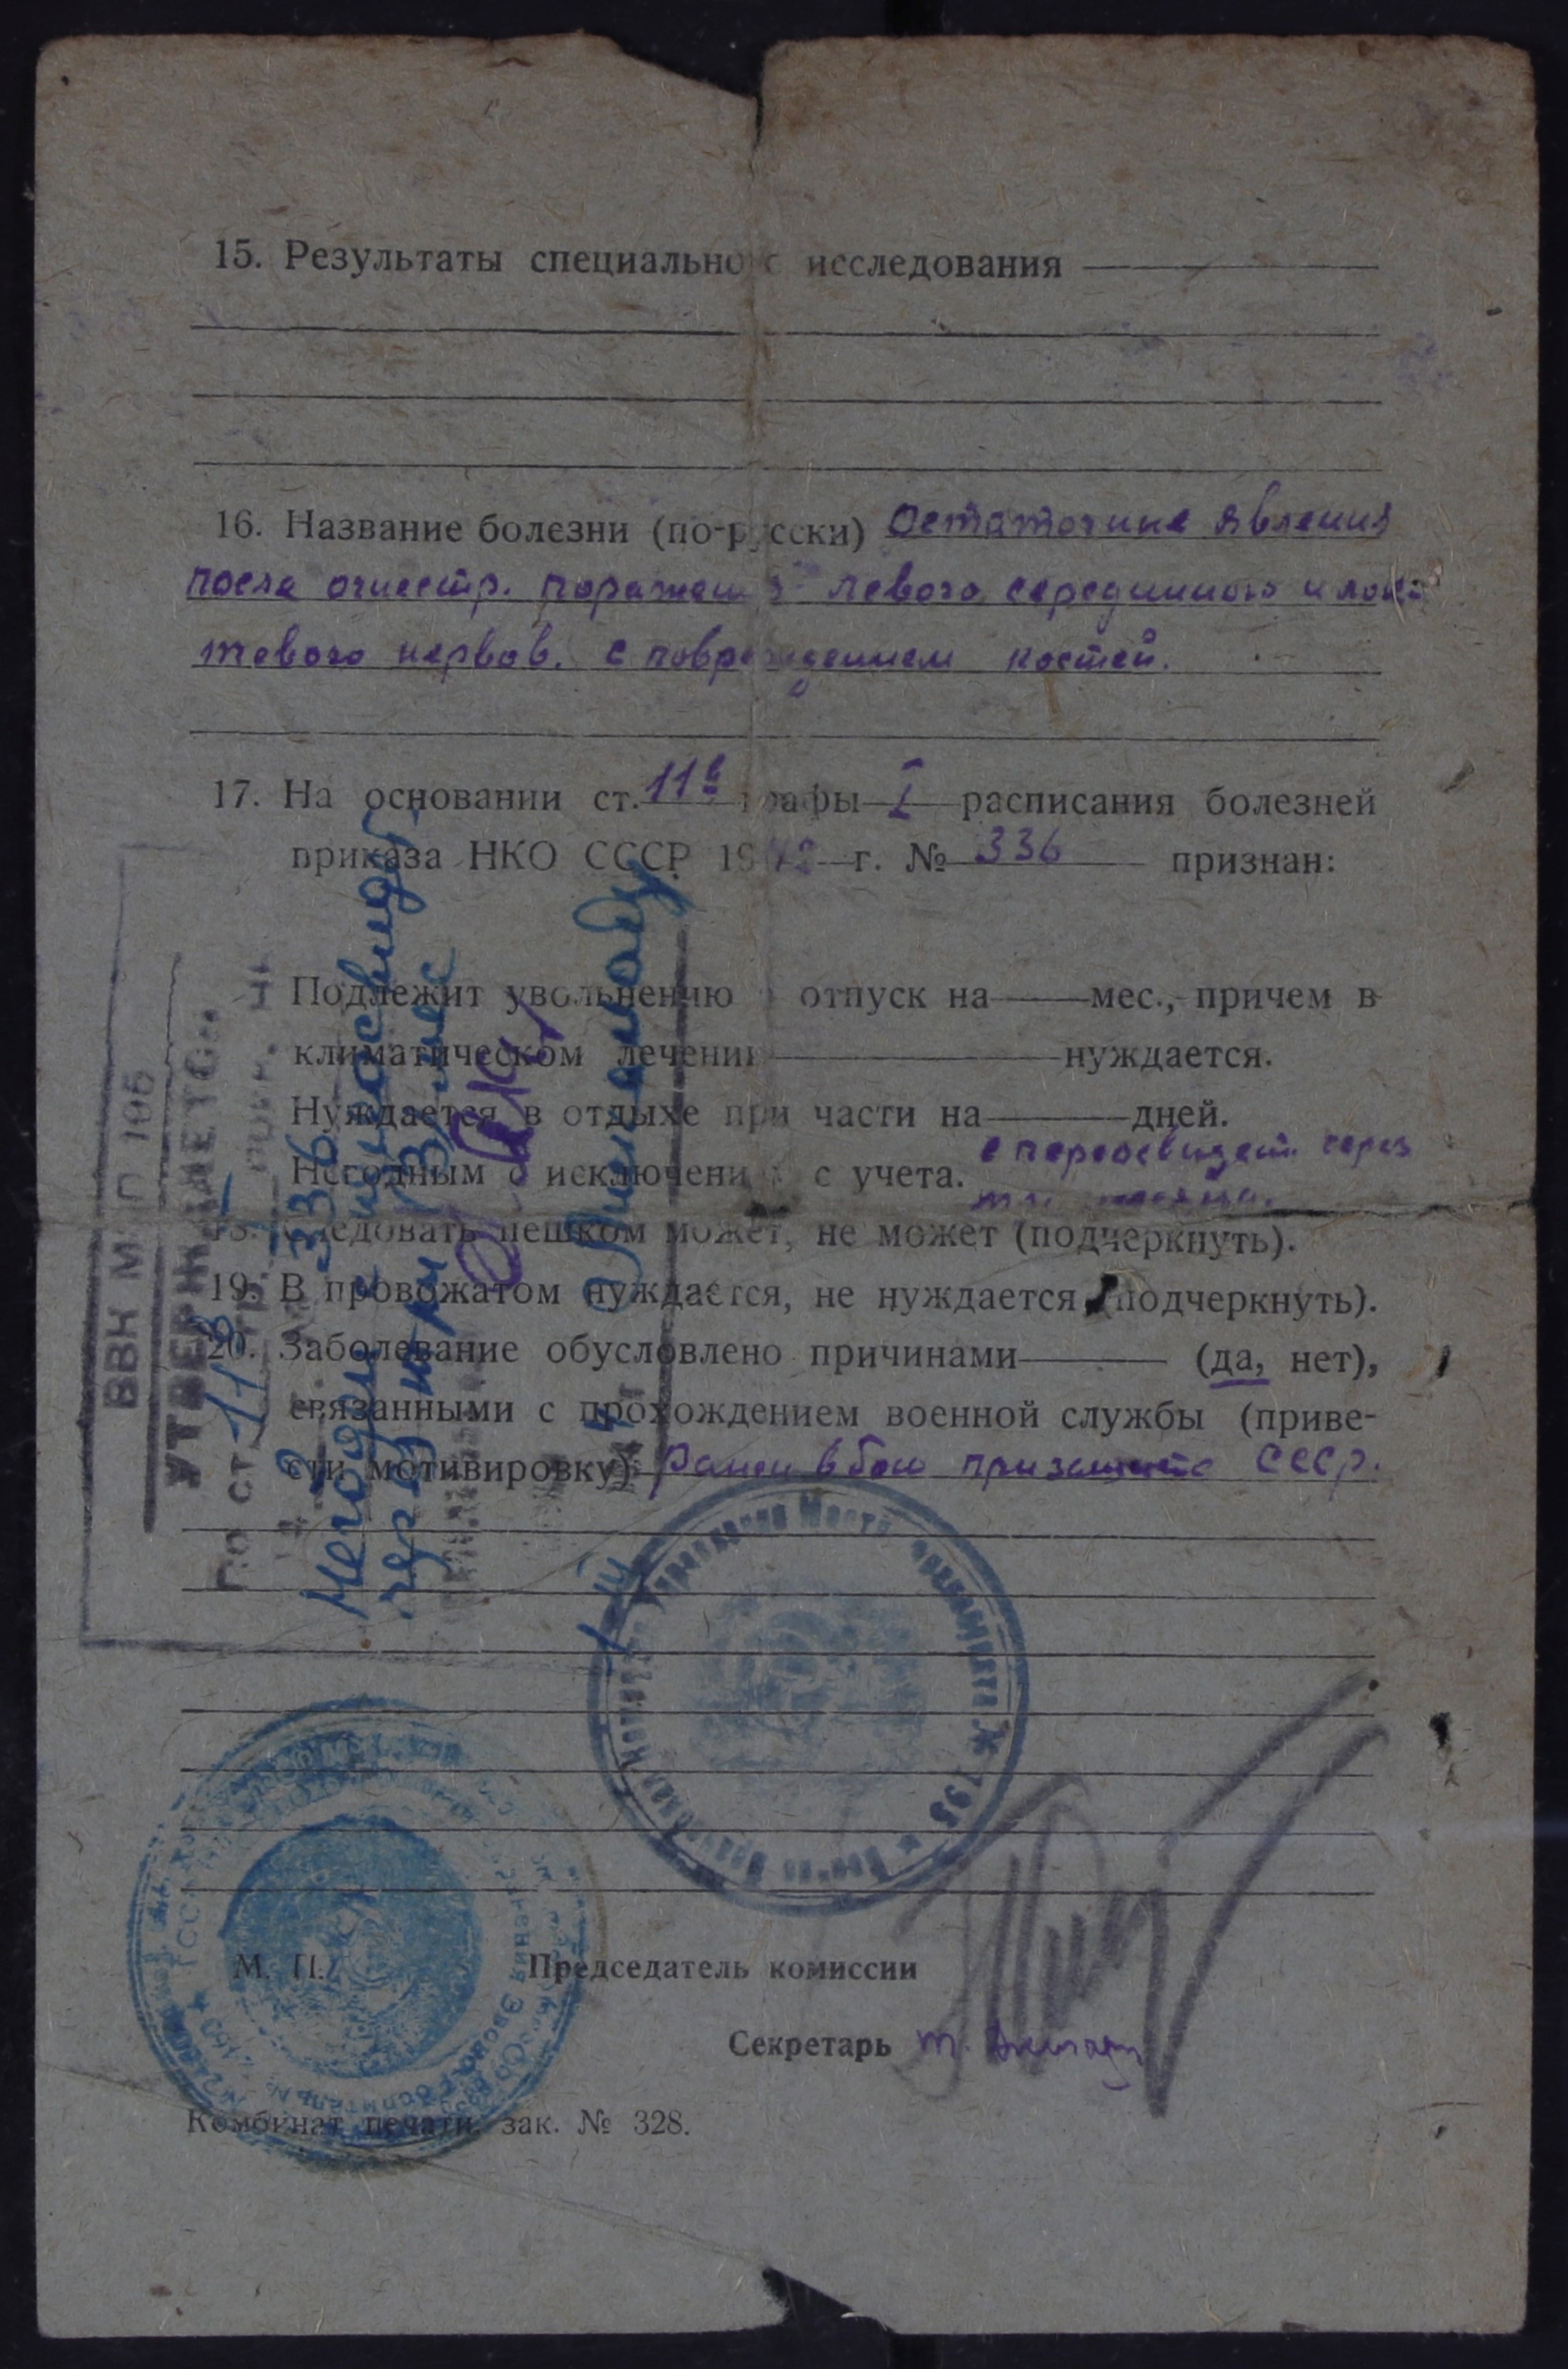 15. Результаты специально исследования
16. Название болезни (по-русски) Остаточные явления
после огнестр. поражения левого серединного и лок-
тевого нервов. с повреждением костей.
17. На основании ст. 11в графы I расписания болезней
приказа НКО СССР 1942 г. № 336 признан:
Подлежит увольнению отпуск на мес., причем в
климатическом лечении нуждается.
Нуждается в отдыхе при части на дней.
Негодным с исключени с учета. с переосвидет. через
три месяца.
18. Следовать пешком может, не может (подчеркнуть).
19. В провожатом нуждается, не нуждается (подчеркнуть).
20. Заболевание обусловлено причинами (да, нет),
связанными с прохождением военной службы (приве-
сти мотивировку) Ранен в бою при защите СССР.
ВВК МЭП 195
УТВЕРЖДАЕТСЯ
По ст. 11в
336
Негоден с переосвидет.
через три мес
М. П.
Председатель комиссии
Секретарь
Комбинат печати, зак. № 328.